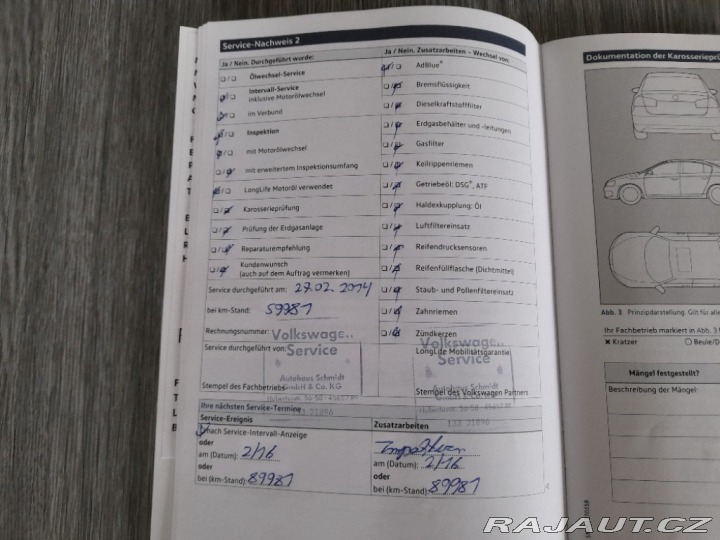 Service-Nachweis 2
Ja / Nein. Durchgeführt wurde:
Ölwechsel-Service
Intervall-Service
inklusive Motorölwechsel
im Verbund
Inspektion
mit Motorölwechsel
mit erweitertem Inspektionsumfang
LongLife Motoröl verwendet
Karosserieprüfung
Prüfung der Erdgasanlage
Reparaturempfehlung
Kundenwunsch
(auch auf dem Auftrag vermerken)
Service durchgeführt am: 27.02.2014
bei km-Stand: 59981
Rechnungsnummer:
Service durchgeführt von:
Volkswagen
Service
Autohaus Schmidt
GmbH & Co. KG
Stempel des Fachbetriebs
133 21896
Ja / Nein. Zusatzarbeiten – Wechsel von:
AdBlue®
Bremsflüssigkeit
Dieselkraftstofffilter
Erdgasbehälter und -leitungen
Gasfilter
Keilrippenriemen
Getriebeöl: DSG®, ATF
Haldexkupplung: Öl
Luftfiltereinsatz
Reifendrucksensoren
Reifenfüllflasche (Dichtmittel)
Staub- und Pollenfiltereinsatz
Zahnriemen
Zündkerzen
LongLife Mobilitätsgarantie
Volkswagen
Service
Autohaus Schmidt
Stempel des Volkswagen Partners
133 21896
Ihre nächsten Service-Termine
Service-Ereignis
nach Service-Intervall-Anzeige
oder
am (Datum): 2/16
oder
bei (km-Stand): 89981
Zusatzarbeiten
Inspektion
am (Datum): 2/16
oder
bei (km-Stand): 89981
Dokumentation der Karosserieprü
Abb. 3 Prinzipdarstellung. Gilt für alle
Ihr Fachbetrieb markiert in Abb. 3
× Kratzer
○ Beule/D
Mängel festgestellt?
Beschreibung der Mängel:
RAJAUT.CZ